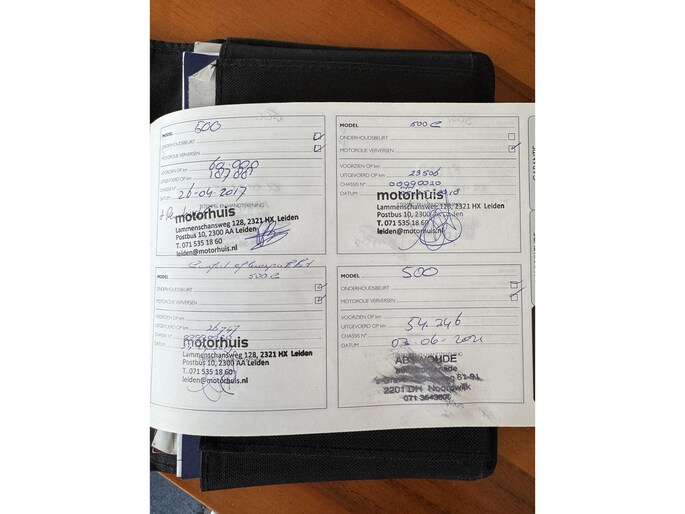 MODEL 500
ONDERHOUDSBEURT
MOTOROLIE VERVERSEN
VOORZIEN OP km 60.000
UITGEVOERD OP km 18788
CHASSIS N°
DATUM 26-04-2017
STEMPEL EN HANDTEKENING
motorhuis
Lammenschansweg 128, 2321 HX Leiden
Postbus 10, 2300 AA Leiden
T. 071 535 18 60
leiden@motorhuis.nl
MODEL 500 C
ONDERHOUDSBEURT
MOTOROLIE VERVERSEN
VOORZIEN OP km
UITGEVOERD OP km 23506
CHASSIS N° 00990020
DATUM
motorhuis
Lammenschansweg 128, 2321 HX Leiden
Postbus 10, 2300 AA Leiden
T. 071 535 18 60
leiden@motorhuis.nl
MODEL 500 C
ONDERHOUDSBEURT
MOTOROLIE VERVERSEN
VOORZIEN OP km
UITGEVOERD OP km 26747
CHASSIS N°
DATUM
motorhuis
Lammenschansweg 128, 2321 HX Leiden
Postbus 10, 2300 AA Leiden
T. 071 535 18 60
leiden@motorhuis.nl
MODEL 500
ONDERHOUDSBEURT
MOTOROLIE VERVERSEN
VOORZIEN OP km
UITGEVOERD OP km 54.246
CHASSIS N°
DATUM 03-06-2021
2201 DH Noordwijk
GARANTIE